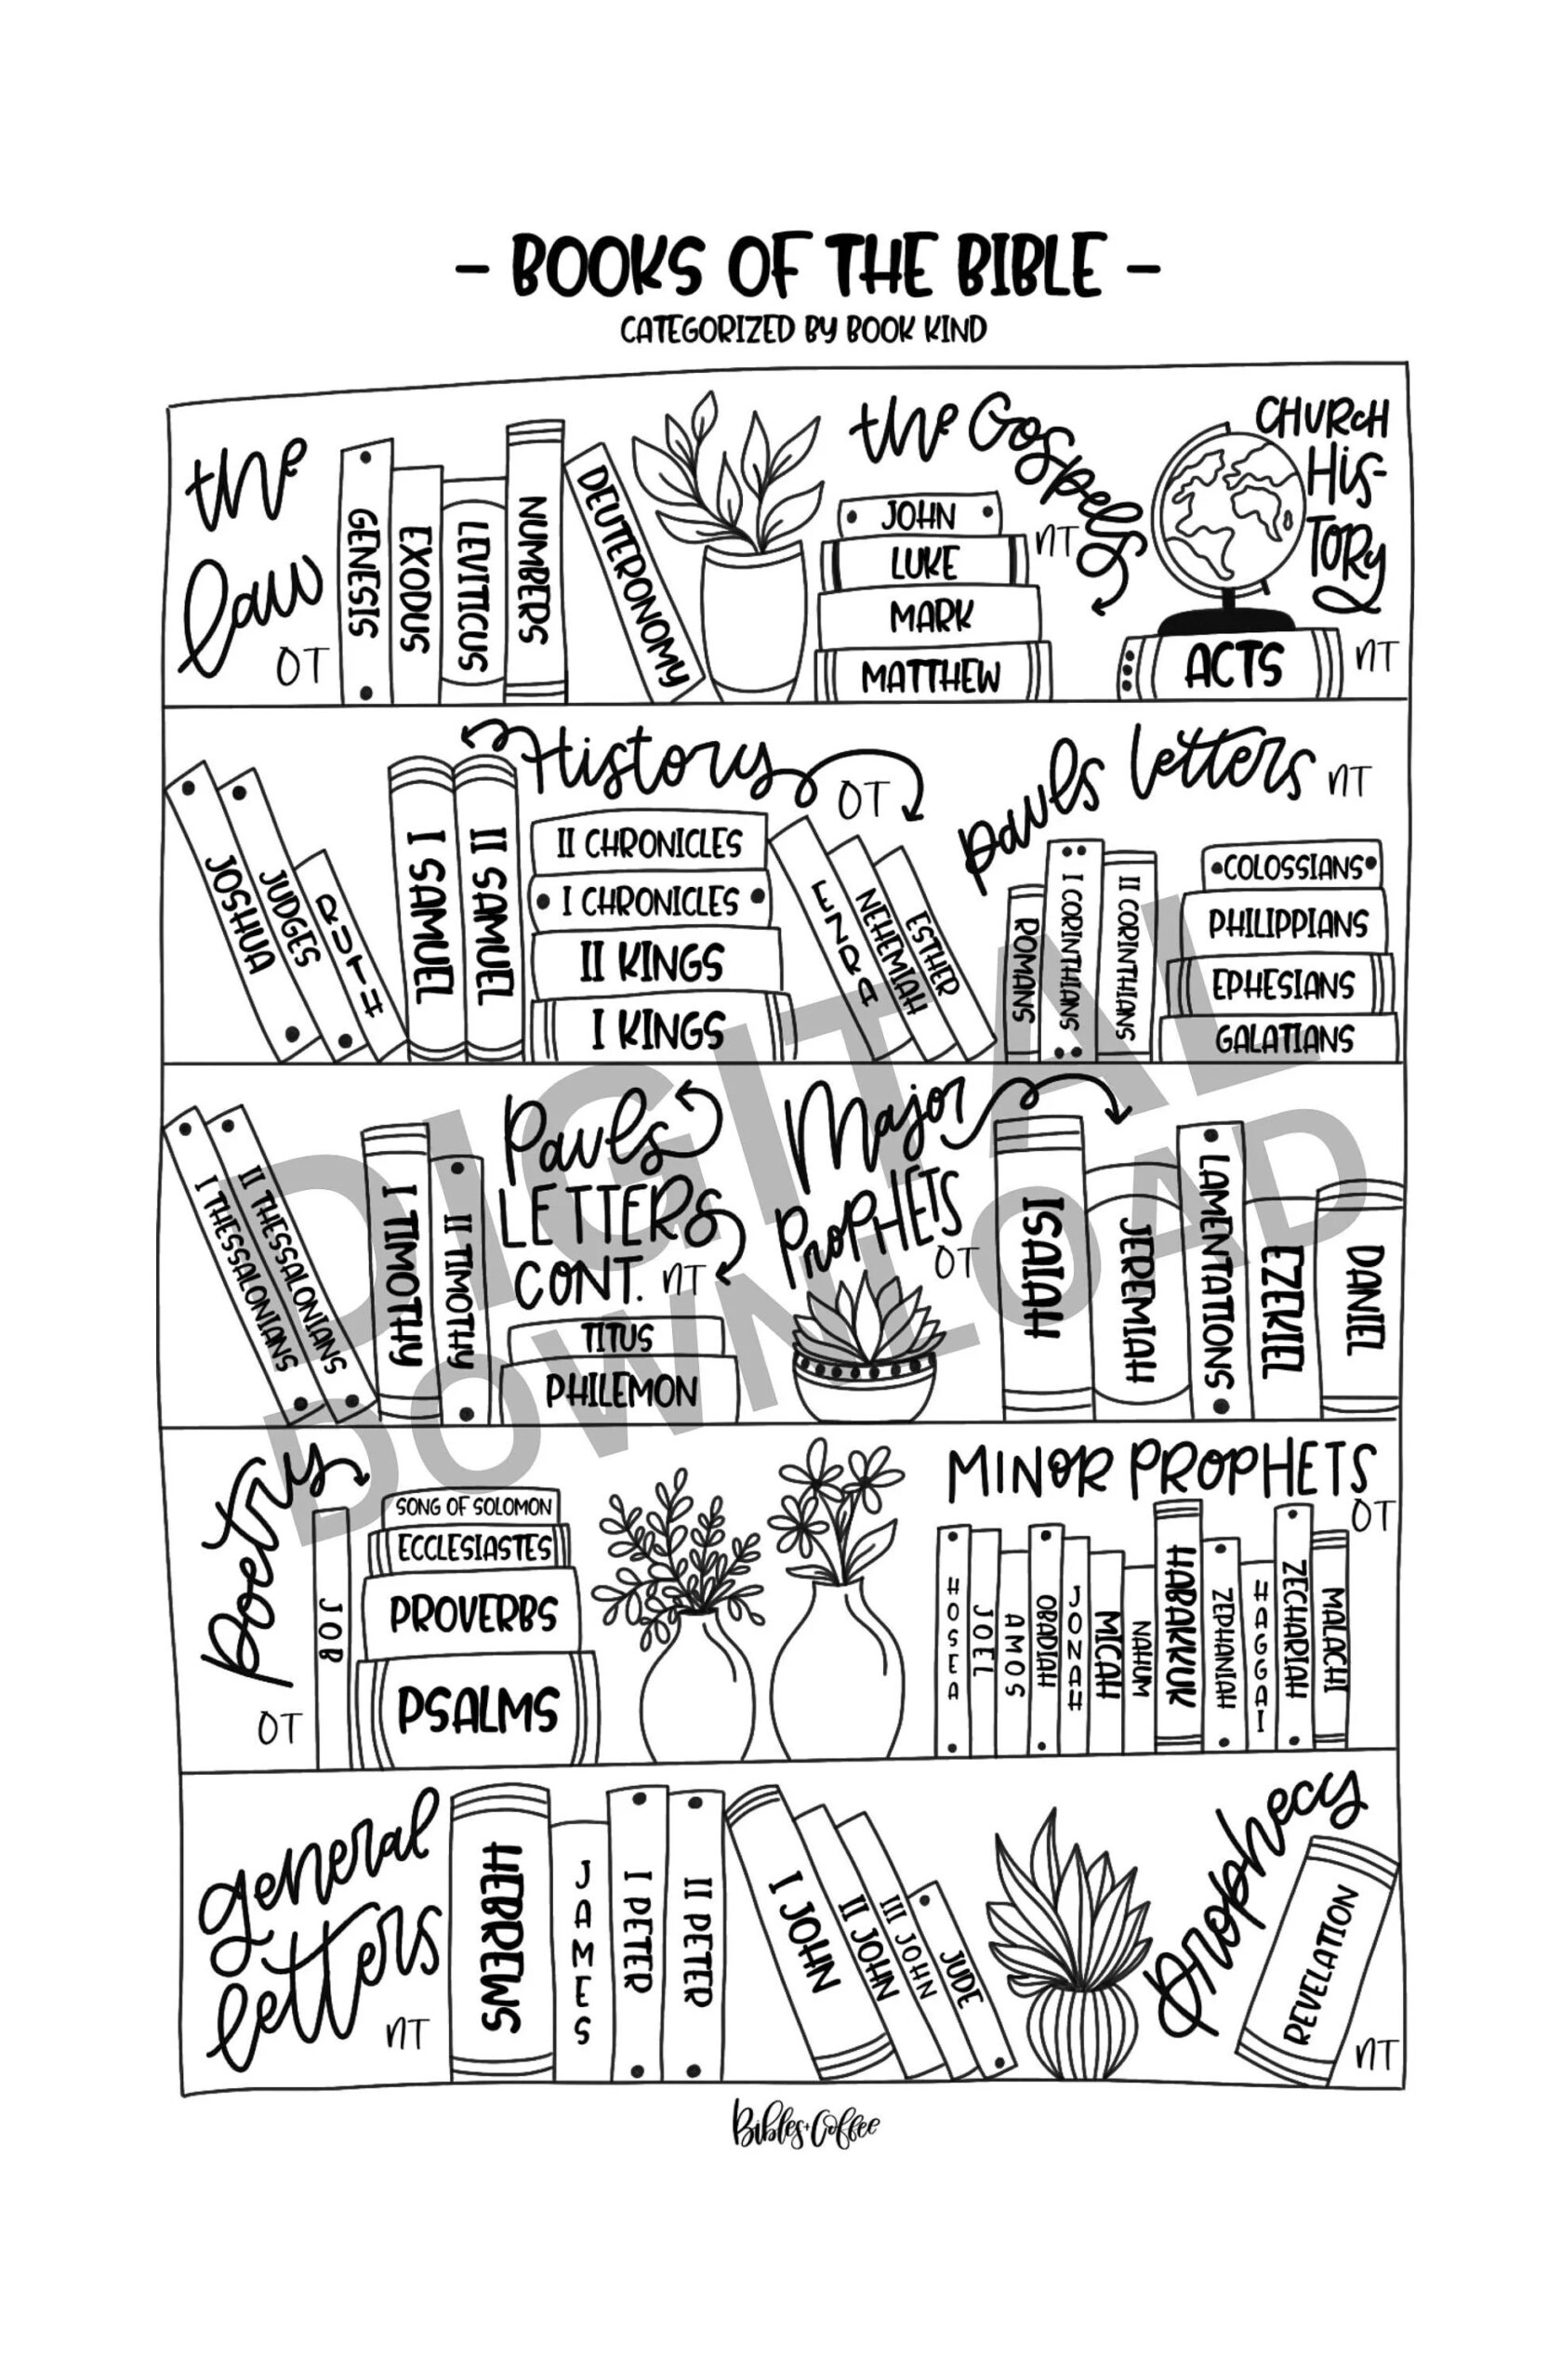 - BOOKS OF THE BIBLE -
CATEGORIZED BY BOOK KIND
the
law
OT
GENESIS
EXODUS
LEVITICUS
NUMBERS
DEUTERONOMY
the Gospels
NT
JOHN
LUKE
MARK
MATTHEW
CHURCH
HIS-
TORY
ACTS
NT
History
OT
JOSHUA
JUDGES
RUTH
I SAMUEL
II SAMUEL
II CHRONICLES
I CHRONICLES
II KINGS
I KINGS
EZRA
NEHEMIAH
ESTHER
pauls letters NT
ROMANS
I CORINTHIANS
II CORINTHIANS
COLOSSIANS
PHILIPPIANS
EPHESIANS
GALATIANS
I THESSALONIANS
II THESSALONIANS
I TIMOTHY
II TIMOTHY
Pauls
LETTERS
CONT. NT
TITUS
PHILEMON
Major
PROPHETS
OT
ISAIAH
JEREMIAH
LAMENTATIONS
EZEKIEL
DANIEL
DIGITAL
DOWNLOAD
Poetry
OT
JOB
SONG OF SOLOMON
ECCLESIASTES
PROVERBS
PSALMS
MINOR PROPHETS
OT
HOSEA
JOEL
AMOS
OBADIAH
JONAH
MICAH
NAHUM
HABAKKUK
ZEPHANIAH
HAGGAI
ZECHARIAH
MALACHI
general
letters
NT
HEBREWS
JAMES
I PETER
II PETER
I JOHN
II JOHN
III JOHN
JUDE
Prophecy
REVELATION
NT
Bibles+Coffee